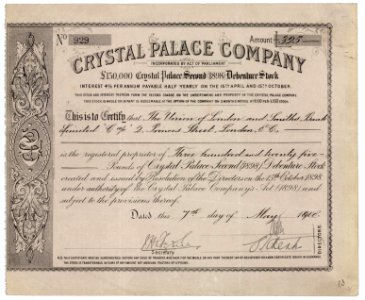 No 929 Amount £325
CRYSTAL PALACE COMPANY
INCORPORATED BY ACT OF PARLIAMENT
£150,000 Crystal Palace Second (1898) Debenture Stock
INTEREST 4% PER ANNUM PAYABLE HALF YEARLY ON THE 15TH APRIL AND 15TH OCTOBER.
This is to Certify that The Union of London and Smiths Bank
Limited of 2, Princes Street, London, E.C.
is the registered proprietor of Three hundred and twenty five
Pounds of Crystal Palace Second (1898) Debenture Stock
created and issued by Resolution of the Directors on the 13th October 1898
under authority of the Crystal Palace Company's Act (1898) and
subject to the provisions thereof.
Dated this 7th day of May
Secretary
DIRECTORS